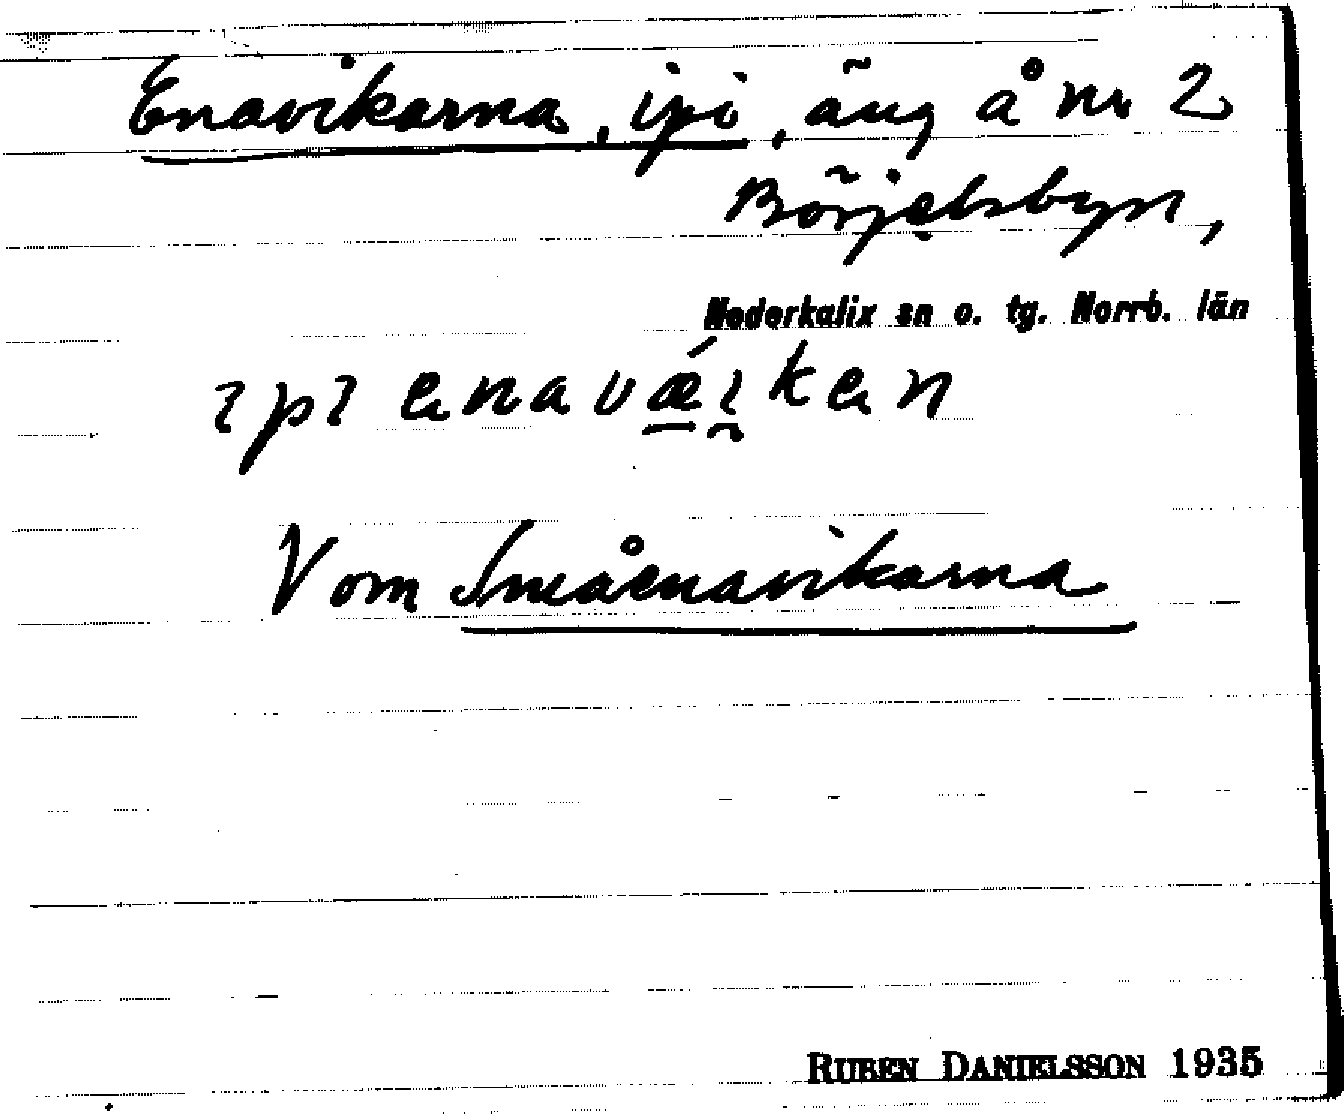 Enavikarna, ipi, äng å nr 2
Börjelsbyn,
Nederkalix sn o. tg. Norrb. län
ıpı enavǽı̯ken
V om Småenavikarna
RUBEN DANIELSSON 1935